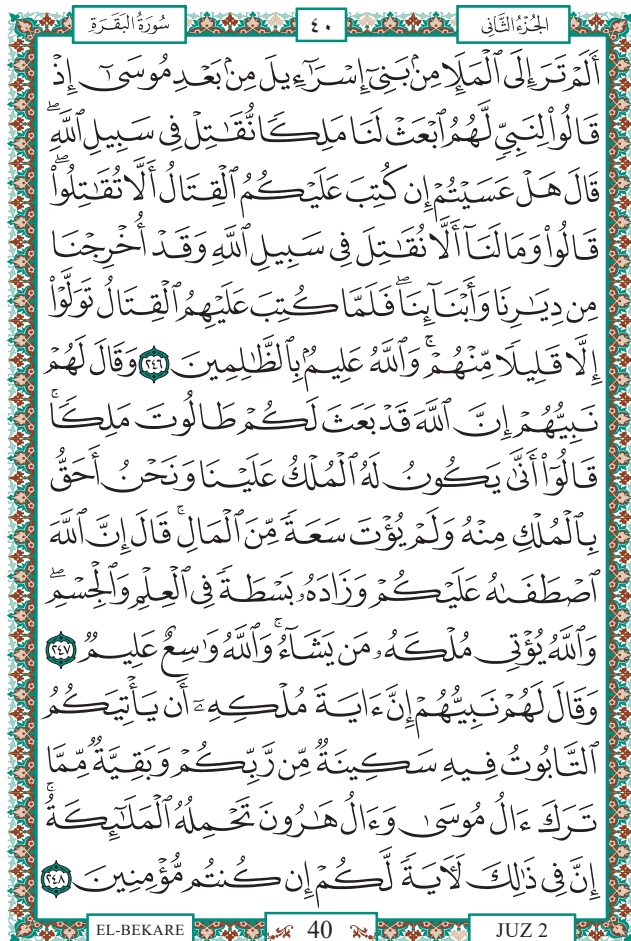 سُورَةُ البَقَرَةِ ٤٠ الجُزْءُ الثَّانِي
أَلَمْ تَرَ إِلَى ٱلْمَلَإِ مِنۢ بَنِىٓ إِسْرَٰٓءِيلَ مِنۢ بَعْدِ مُوسَىٰٓ إِذْ
قَالُوا۟ لِنَبِىٍّ لَّهُمُ ٱبْعَثْ لَنَا مَلِكًا نُّقَٰتِلْ فِى سَبِيلِ ٱللَّهِ ۖ
قَالَ هَلْ عَسَيْتُمْ إِن كُتِبَ عَلَيْكُمُ ٱلْقِتَالُ أَلَّا تُقَٰتِلُوا۟ ۖ
قَالُوا۟ وَمَا لَنَآ أَلَّا نُقَٰتِلَ فِى سَبِيلِ ٱللَّهِ وَقَدْ أُخْرِجْنَا
مِن دِيَٰرِنَا وَأَبْنَآئِنَا ۖ فَلَمَّا كُتِبَ عَلَيْهِمُ ٱلْقِتَالُ تَوَلَّوْا۟
إِلَّا قَلِيلًا مِّنْهُمْ ۗ وَٱللَّهُ عَلِيمٌۢ بِٱلظَّٰلِمِينَ ٢٤٦ وَقَالَ لَهُمْ
نَبِيُّهُمْ إِنَّ ٱللَّهَ قَدْ بَعَثَ لَكُمْ طَالُوتَ مَلِكًا ۚ
قَالُوٓا۟ أَنَّىٰ يَكُونُ لَهُ ٱلْمُلْكُ عَلَيْنَا وَنَحْنُ أَحَقُّ
بِٱلْمُلْكِ مِنْهُ وَلَمْ يُؤْتَ سَعَةً مِّنَ ٱلْمَالِ ۚ قَالَ إِنَّ ٱللَّهَ
ٱصْطَفَىٰهُ عَلَيْكُمْ وَزَادَهُۥ بَسْطَةً فِى ٱلْعِلْمِ وَٱلْجِسْمِ ۖ
وَٱللَّهُ يُؤْتِى مُلْكَهُۥ مَن يَشَآءُ ۚ وَٱللَّهُ وَٰسِعٌ عَلِيمٌ ٢٤٧
وَقَالَ لَهُمْ نَبِيُّهُمْ إِنَّ ءَايَةَ مُلْكِهِۦٓ أَن يَأْتِيَكُمُ
ٱلتَّابُوتُ فِيهِ سَكِينَةٌ مِّن رَّبِّكُمْ وَبَقِيَّةٌ مِّمَّا
تَرَكَ ءَالُ مُوسَىٰ وَءَالُ هَٰرُونَ تَحْمِلُهُ ٱلْمَلَٰٓئِكَةُ ۚ
إِنَّ فِى ذَٰلِكَ لَءَايَةً لَّكُمْ إِن كُنتُم مُّؤْمِنِينَ ٢٤٨
EL-BEKARE 40 JUZ 2